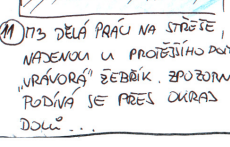 11 M3 DĚLÁ PRÁCI NA STŘEŠE,
NAJEDNOU U PROTĚJŠÍHO DOM
"VRÁVORÁ" ŽEBŘÍK. ZPOZORN
PODÍVÁ SE PŘES OKRAJ
DOLŮ...